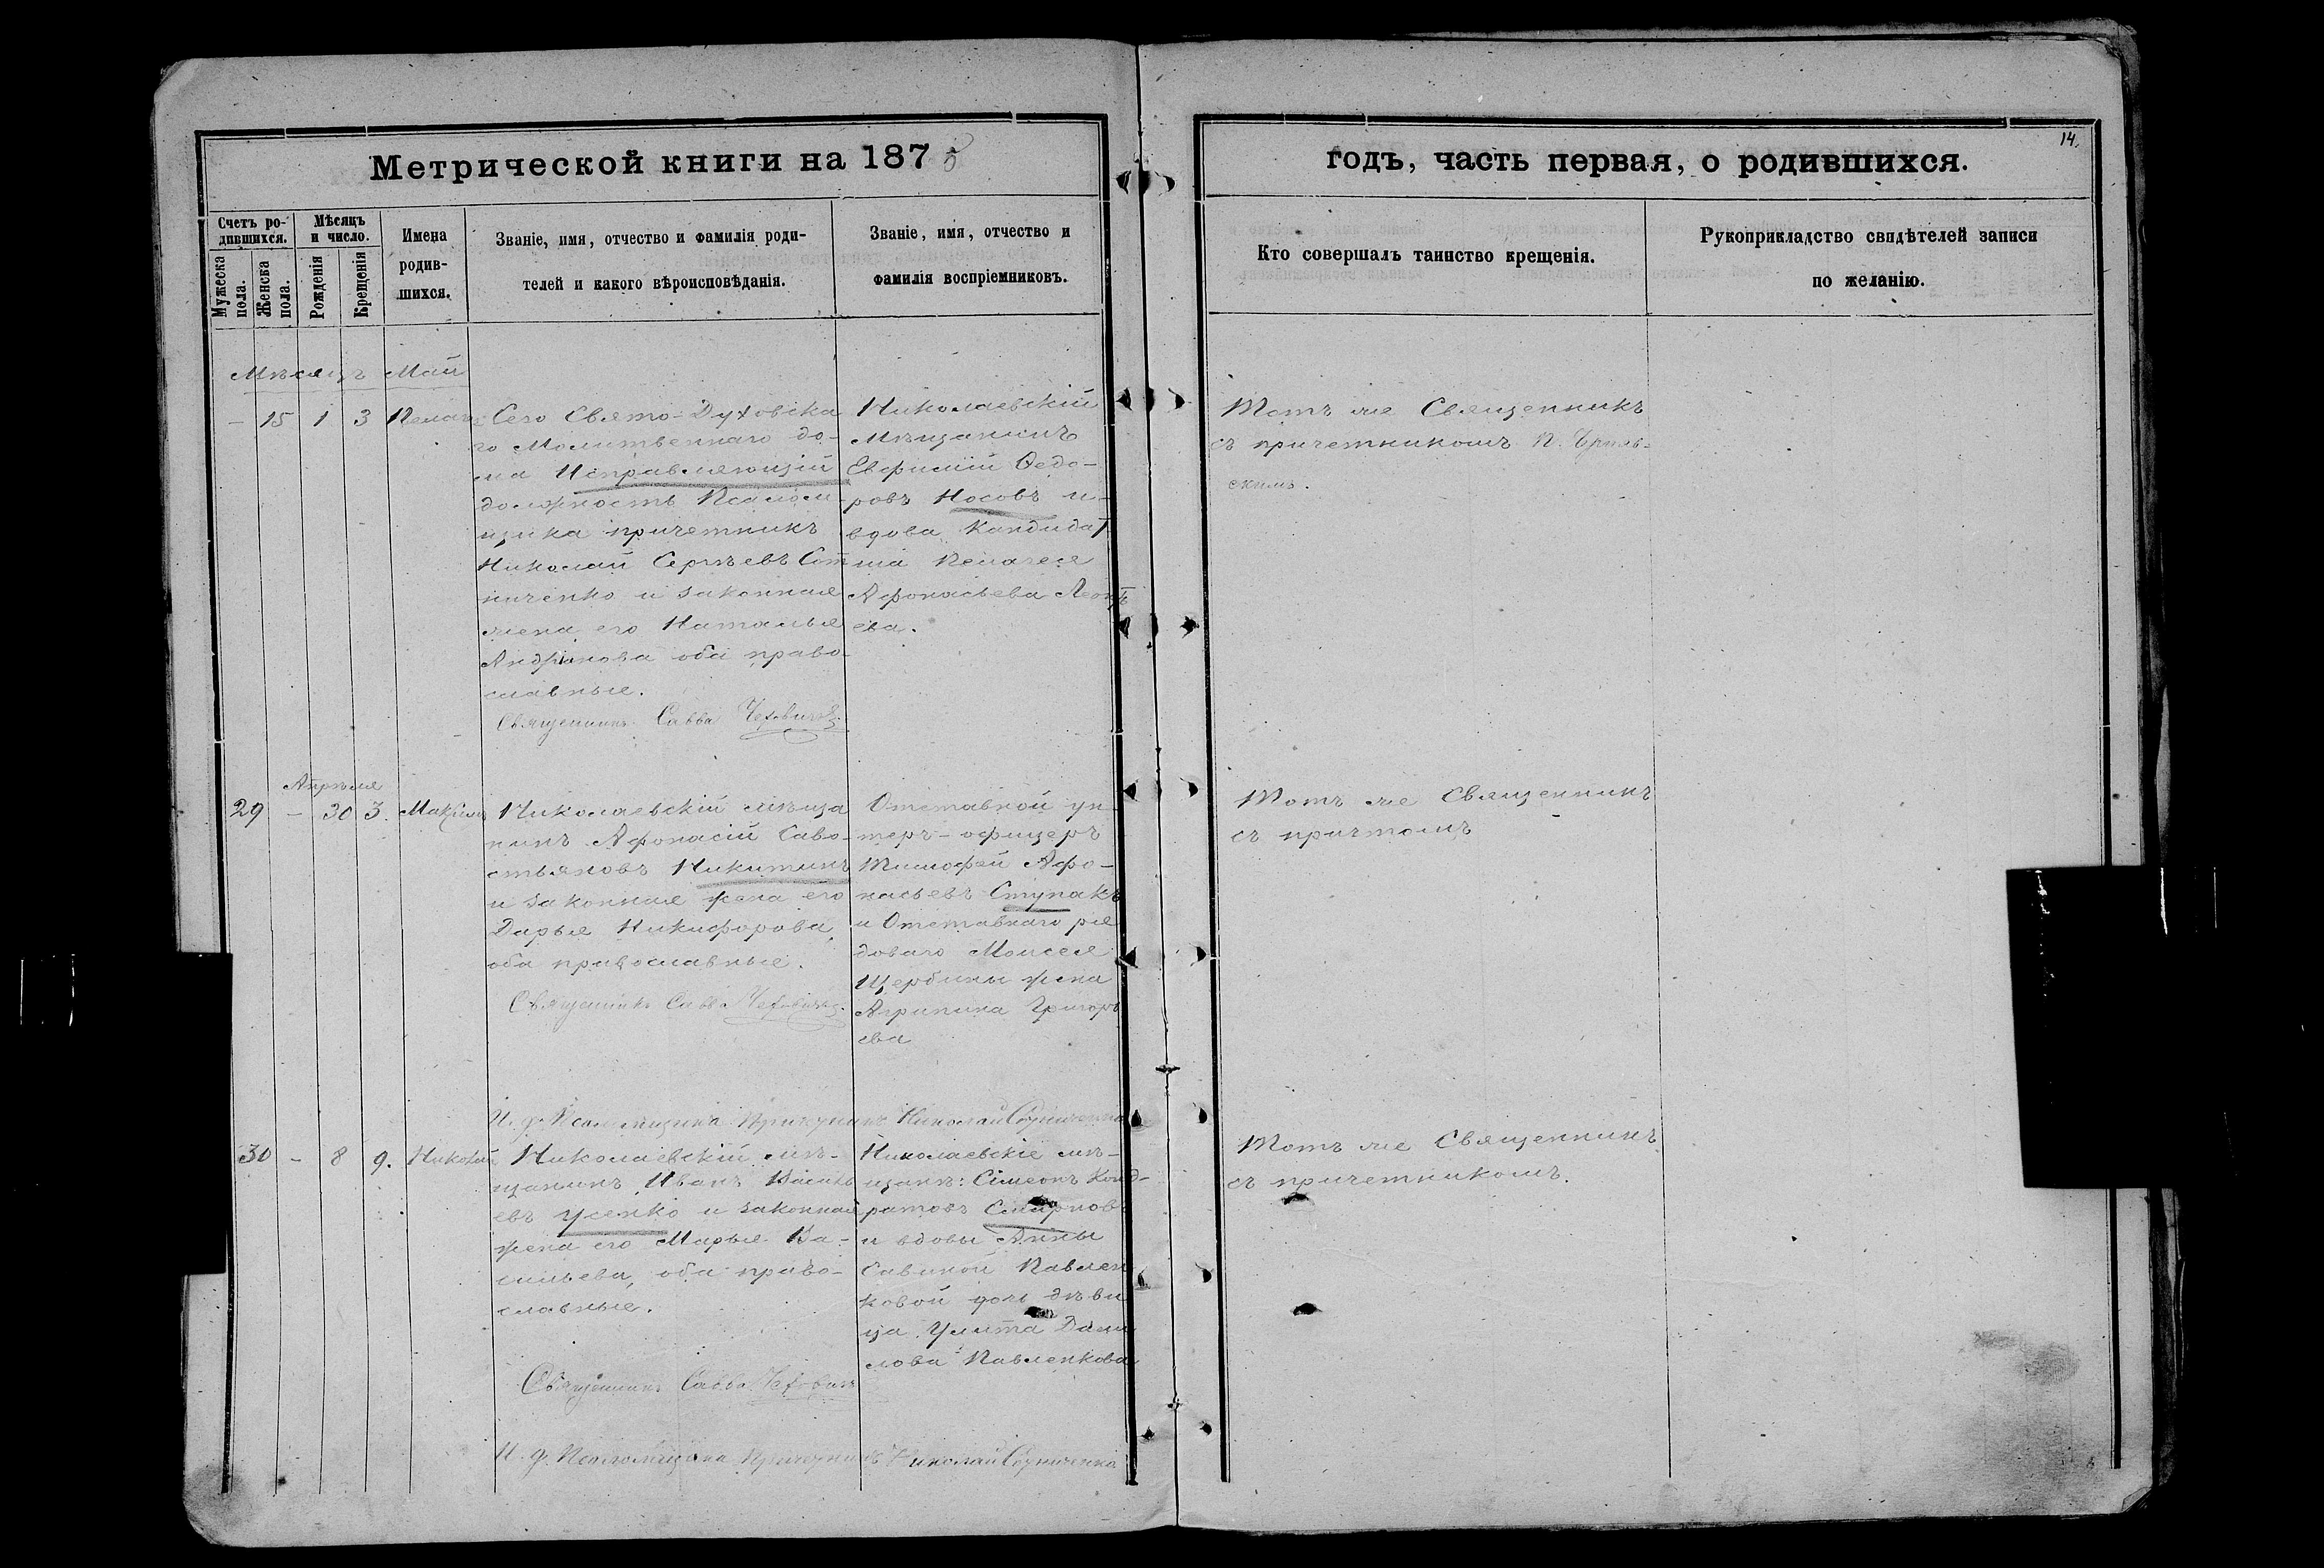 Метрической книги на 1875
годъ, часть первая, о родившихся.
14.
Счетъ ро-
дившихся.
Мѣсяцъ
и число.
Мужеска
пола.
Женска
пола.
Рожденія
Крещенія
Имена
родив-
шихся.
Званіе, имя, отчество и фамилія роди-
телей и какого вѣроисповѣданія.
Званіе, имя, отчество и
фамилія воспріемниковъ.
Кто совершалъ таинство крещенія.
Рукоприкладство свидѣтелей записи
по желанію.
Мѣсяцъ Май
- 15 1 3
Сего Свято-Духовска
го Молитвеннаго до-
ма Исправляющій
должность Псалом-
щика причетникъ
Николай Сергѣевъ
ниченко и законная
жена его Наталья
Андріанова оба право-
славные.
Священникъ Савва
Николаевскій
Мѣщанинъ
Евфимій Ѳедо-
ровъ Носовъ и
вдова Кандидат
ша Пелагея
Афонасьева
ева.
Тотъ же Священникъ
съ причетникомъ П.
скимъ.
Апрѣля
29 - 30 3. Максимъ
Николаевскій мѣща
нинъ Афонасій Саво-
стьяновъ Никитинъ
и законная жена его
Дарья Никифорова,
оба православные.
Священникъ Савва
Отставной ун
теръ-офицеръ
Тимофей Афо-
насьевъ Ступакъ
и Отставнаго ря
доваго Моисея
Щербины жена
Агрипина Григорь
ева
Тотъ же Священникъ
съ причтомъ
И. д. Псаломщика Причетникъ Николай
30 - 8 9. Николай
Николаевскій мѣ-
щанинъ Иванъ Василь
евъ Усенко и законная
жена его Марья Ва-
сильева, оба право-
славные.
Священникъ Савва
Николаевскіе мѣ-
щане: Симеонъ Конд-
ратовъ Смирновъ
и вдовы Анны
Савиной Павлен
ковой дочь дѣви
ца Улита Дани
лова Павленкова
Тотъ же Священникъ
съ причетникомъ.
И. д. Псаломщика Причетникъ Николай